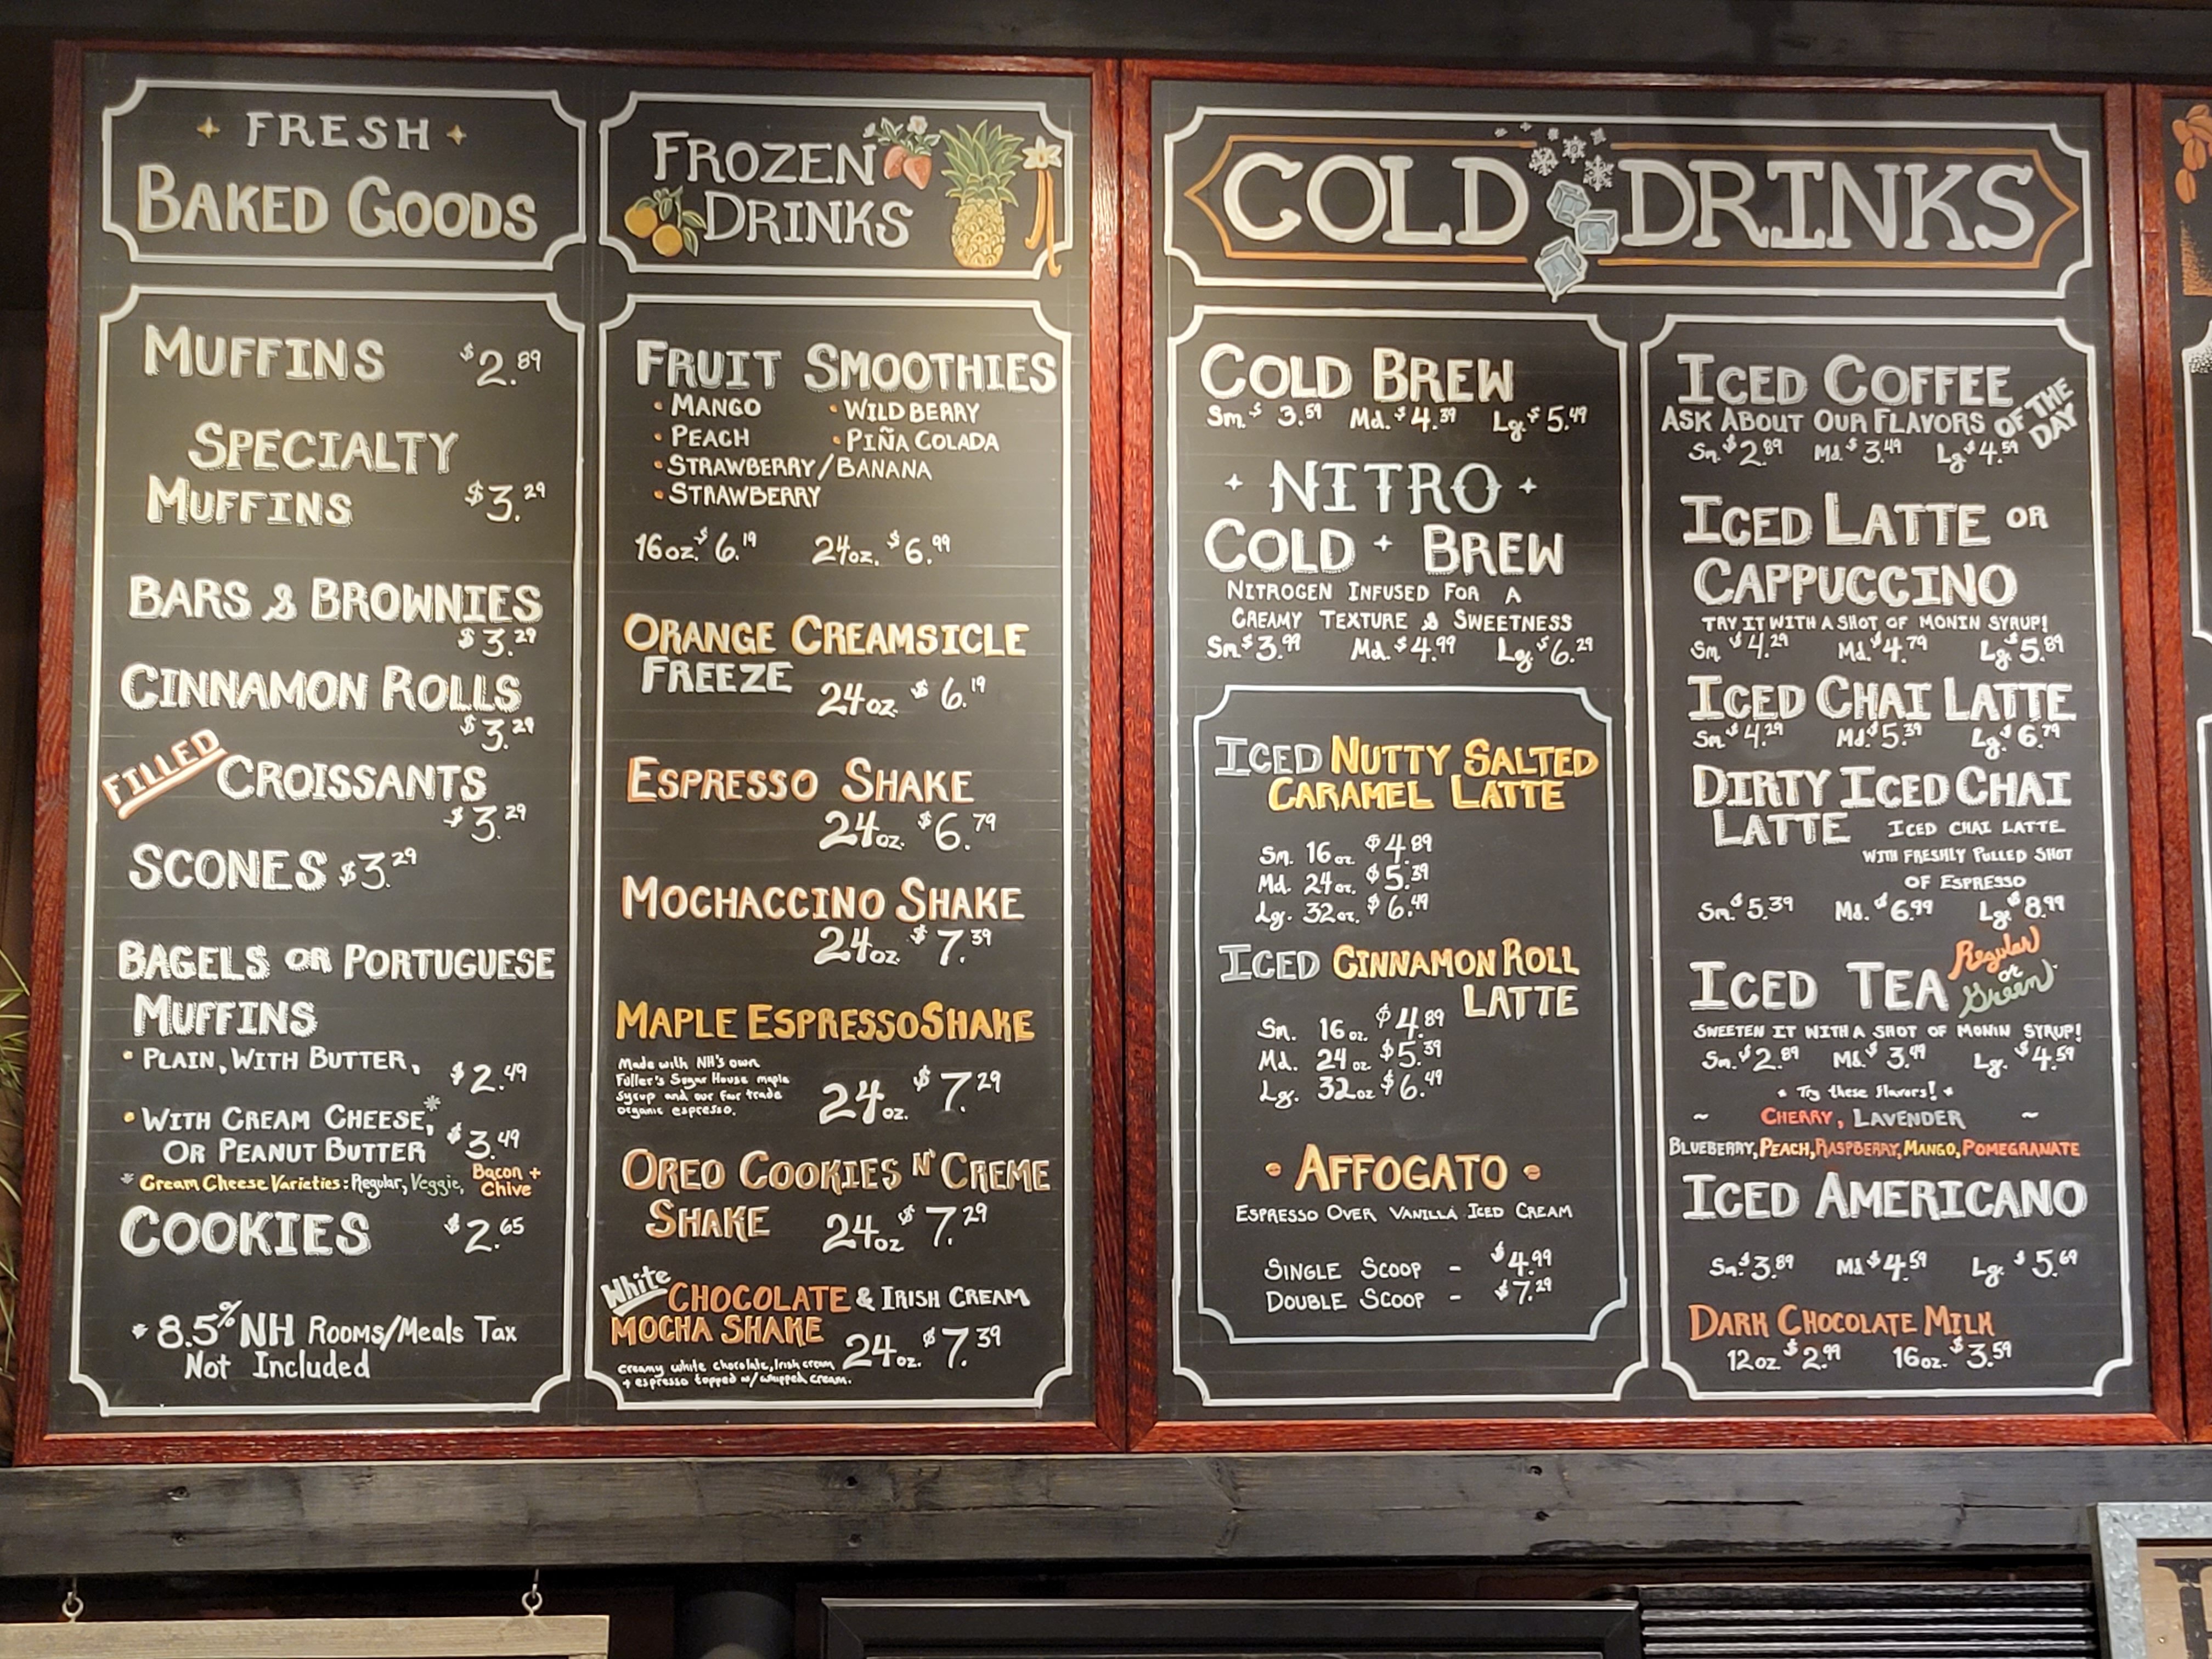 FRESH
BAKED GOODS
MUFFINS $2.89
SPECIALTY
MUFFINS $3.29
BARS & BROWNIES
$3.29
CINNAMON ROLLS
$3.29
FILLED CROISSANTS
$3.29
SCONES $3.29
BAGELS OR PORTUGUESE
MUFFINS
• PLAIN, WITH BUTTER, $2.49
• WITH CREAM CHEESE,*
OR PEANUT BUTTER $3.49
* Cream Cheese Varieties: Regular, Veggie, Bacon + Chive
COOKIES $2.65
* 8.5% NH ROOMS/MEALS TAX
Not Included
FROZEN
DRINKS
FRUIT SMOOTHIES
• MANGO • WILD BERRY
• PEACH • PIÑA COLADA
• STRAWBERRY/BANANA
• STRAWBERRY
16oz. $6.19 24oz. $6.99
ORANGE CREAMSICLE
FREEZE 24oz $6.19
ESPRESSO SHAKE
24oz. $6.79
MOCHACCINO SHAKE
24oz $7.39
MAPLE ESPRESSO SHAKE
Made with NH's own
Fuller's Sugar House maple
syrup and our fair trade
organic espresso.
24oz. $7.29
OREO COOKIES N' CREME
SHAKE 24oz $7.29
White CHOCOLATE & IRISH CREAM
MOCHA SHAKE 24oz. $7.39
creamy white chocolate, Irish cream
+ espresso topped w/ whipped cream.
COLD DRINKS
COLD BREW
Sm. $3.59 Md. $4.39 Lg. $5.49
NITRO
COLD BREW
NITROGEN INFUSED FOR A
CREAMY TEXTURE & SWEETNESS
Sm $3.99 Md. $4.99 Lg. $6.29
ICED NUTTY SALTED
CARAMEL LATTE
Sm. 16oz. $4.89
Md. 24oz. $5.39
Lg. 32oz. $6.49
ICED CINNAMON ROLL
LATTE
Sm. 16oz. $4.89
Md. 24oz $5.39
Lg. 32oz $6.49
• AFFOGATO •
ESPRESSO OVER VANILLA ICED CREAM
SINGLE SCOOP - $4.99
DOUBLE SCOOP - $7.29
ICED COFFEE
ASK ABOUT OUR FLAVORS OF THE DAY
Sm. $2.89 Md. $3.49 Lg $4.59
ICED LATTE OR
CAPPUCCINO
TRY IT WITH A SHOT OF MONIN SYRUP!
Sm $4.29 Md. $4.79 Lg. $5.89
ICED CHAI LATTE
Sm $4.29 Md. $5.39 Lg. $6.79
DIRTY ICED CHAI
LATTE ICED CHAI LATTE
WITH FRESHLY PULLED SHOT
OF ESPRESSO
Sm. $5.39 Md. $6.99 Lg. $8.99
ICED TEA Regular or Green
SWEETEN IT WITH A SHOT OF MONIN SYRUP!
Sm. $2.89 Md. $3.49 Lg. $4.59
* Try these flavors! *
~ CHERRY, LAVENDER ~
BLUEBERRY, PEACH, RASPBERRY, MANGO, POMEGRANATE
ICED AMERICANO
Sm. $3.89 Md $4.59 Lg. $5.69
DARK CHOCOLATE MILK
12oz $2.99 16oz. $3.59